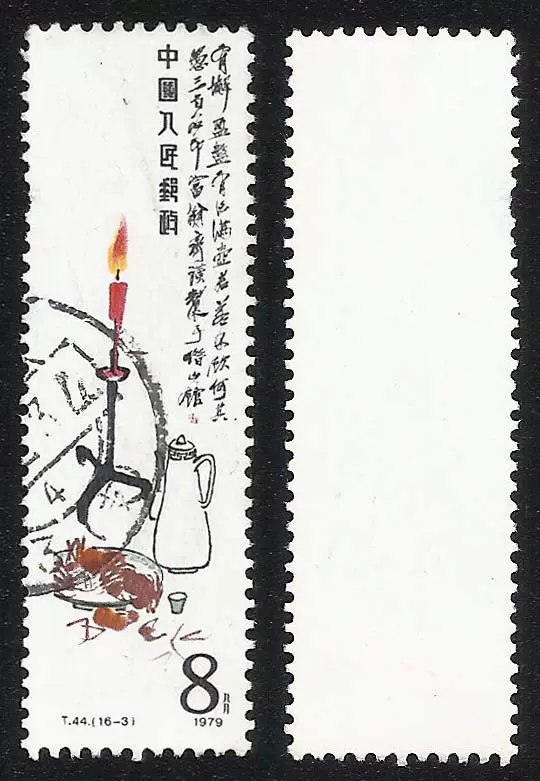 有蟹盈盤有酒滿壺君若不飲何其
愚三百石印富翁齊璜製于借山館
中國人民郵政
8分
T.44.(16-3)
1979